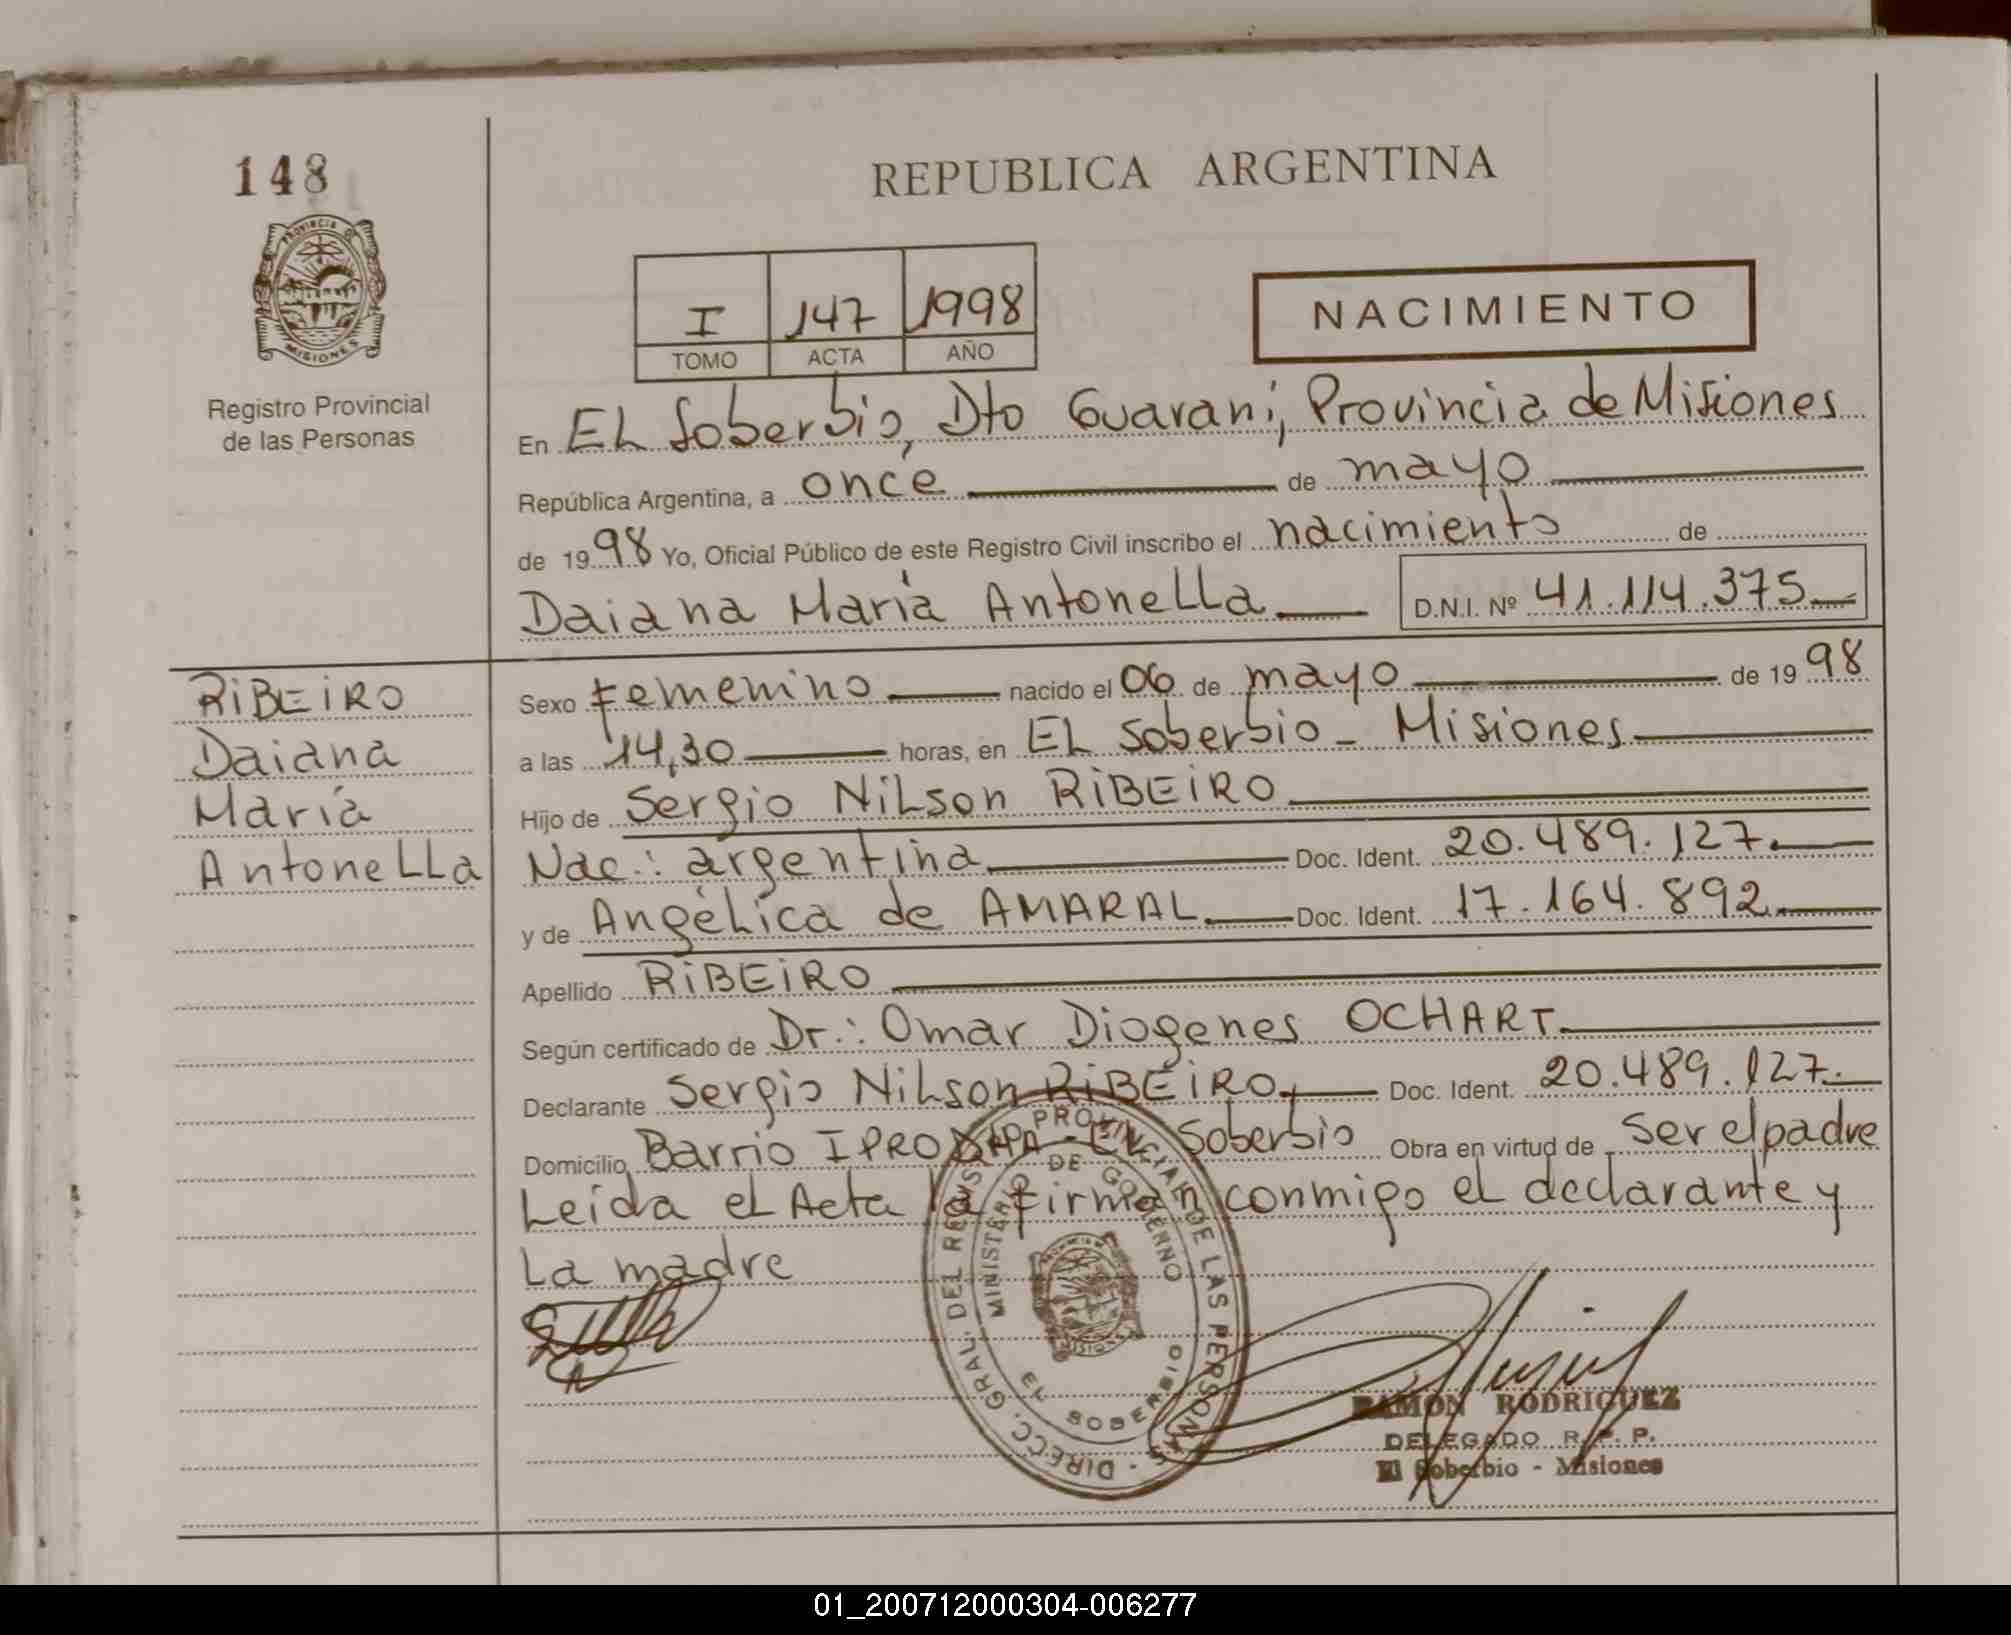 148
REPUBLICA ARGENTINA
PROVINCIA DE
MISIONES
Registro Provincial
de las Personas
I 147 1998
TOMO ACTA AÑO
NACIMIENTO
En EL Soberbio, Dto Guaraní, Provincia de Misiones
República Argentina, a once de mayo
de 1998 Yo, Oficial Público de este Registro Civil inscribo el nacimiento de
Daiana María Antonella D.N.I. Nº 41.114.375
RIBEIRO
Daiana
María
Antonella
Sexo femenino nacido el 06 de mayo de 1998
a las 14,30 horas, en EL Soberbio - Misiones
Hijo de Sergio Nilson RIBEIRO
Nac.: argentina Doc. Ident. 20.489.127.
y de Angélica de AMARAL. Doc. Ident. 17.164.892.
Apellido RIBEIRO
Según certificado de Dr.: Omar Diogenes OCHART.
Declarante Sergio Nilson RIBEIRO, Doc. Ident. 20.489.127.
Domicilio Barrio IPRODHA - EL Soberbio Obra en virtud de ser el padre
Leida el Acta la firman conmigo el declarante y
La madre
DIRECC. GRAL. DEL REGISTRO PROVINCIAL DE LAS PERSONAS
MINISTERIO DE GOBIERNO
EL SOBERBIO
RAMON RODRIGUEZ
DELEGADO R. P. P.
El Soberbio - Misiones
01_200712000304-006277